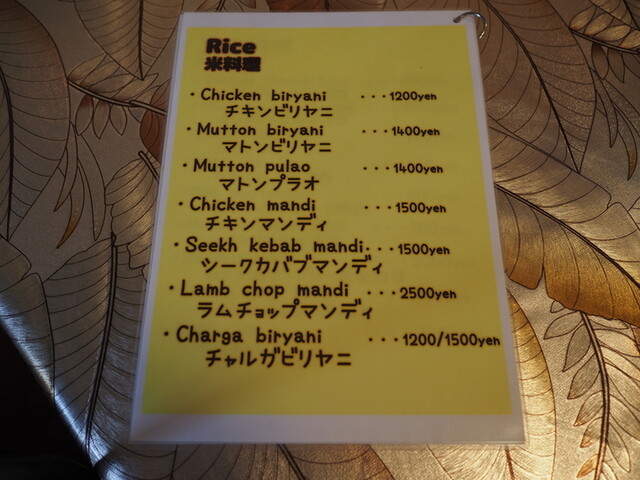 Rice
米料理
・Chicken biryani ・・・1200yen
チキンビリヤニ
・Mutton biryani ・・・1400yen
マトンビリヤニ
・Mutton pulao ・・・1400yen
マトンプラオ
・Chicken mandi ・・・1500yen
チキンマンディ
・Seekh kebab mandi・・・1500yen
シークカバブマンディ
・Lamb chop mandi ・・・2500yen
ラムチョップマンディ
・Charga biryani ・・・1200/1500yen
チャルガビリヤニ